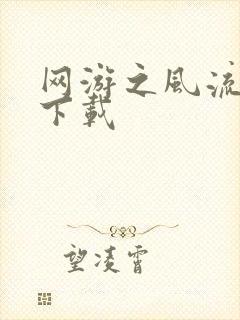 网游之风流
下载
望凌霄